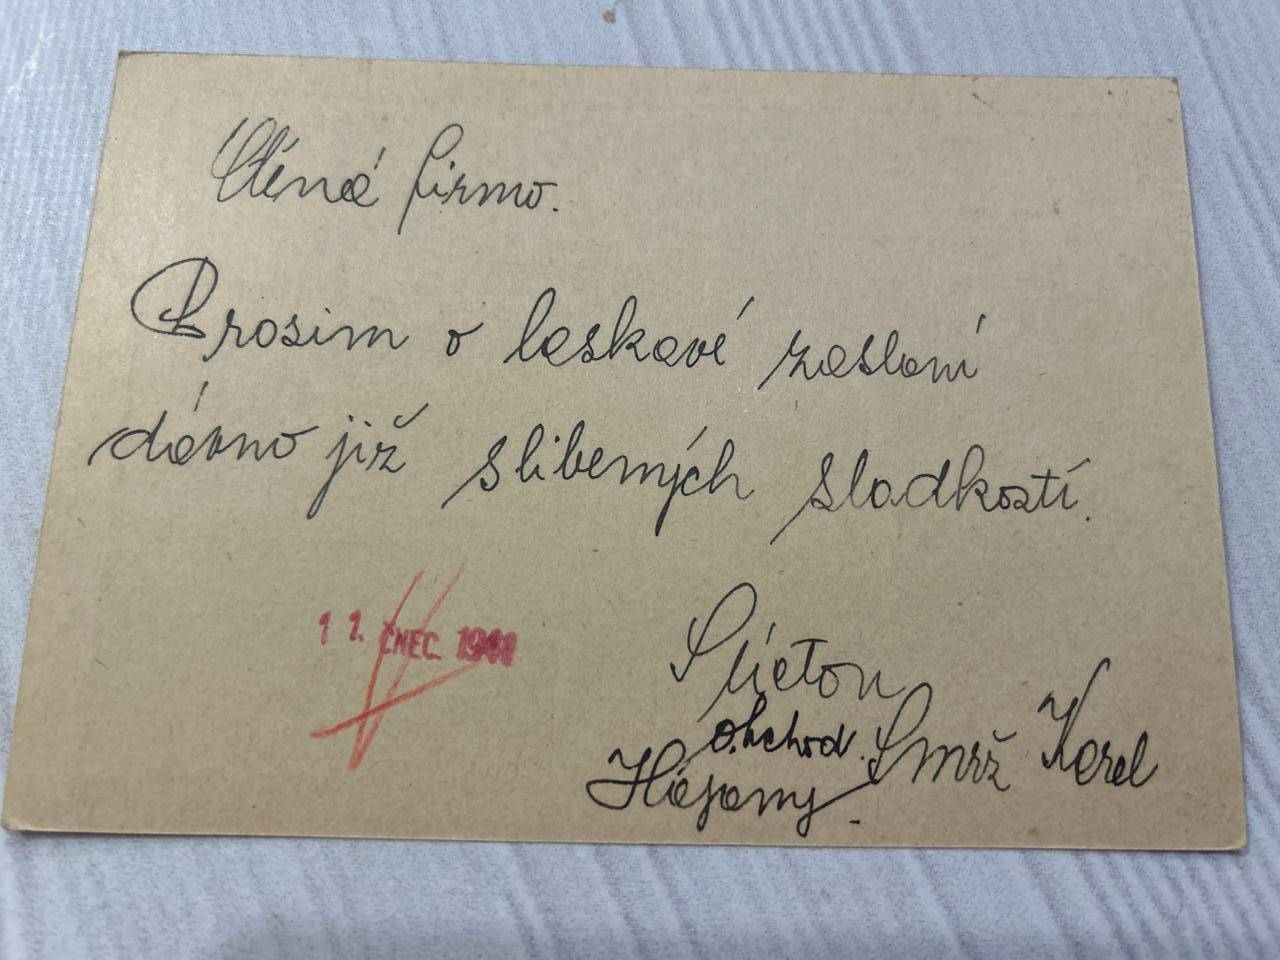 Ctěná firmo.
Prosim o laskavé zaslaní
dávno již slibených sladkostí.
11. 1941
obchod. Smrž Karel
Hájany.